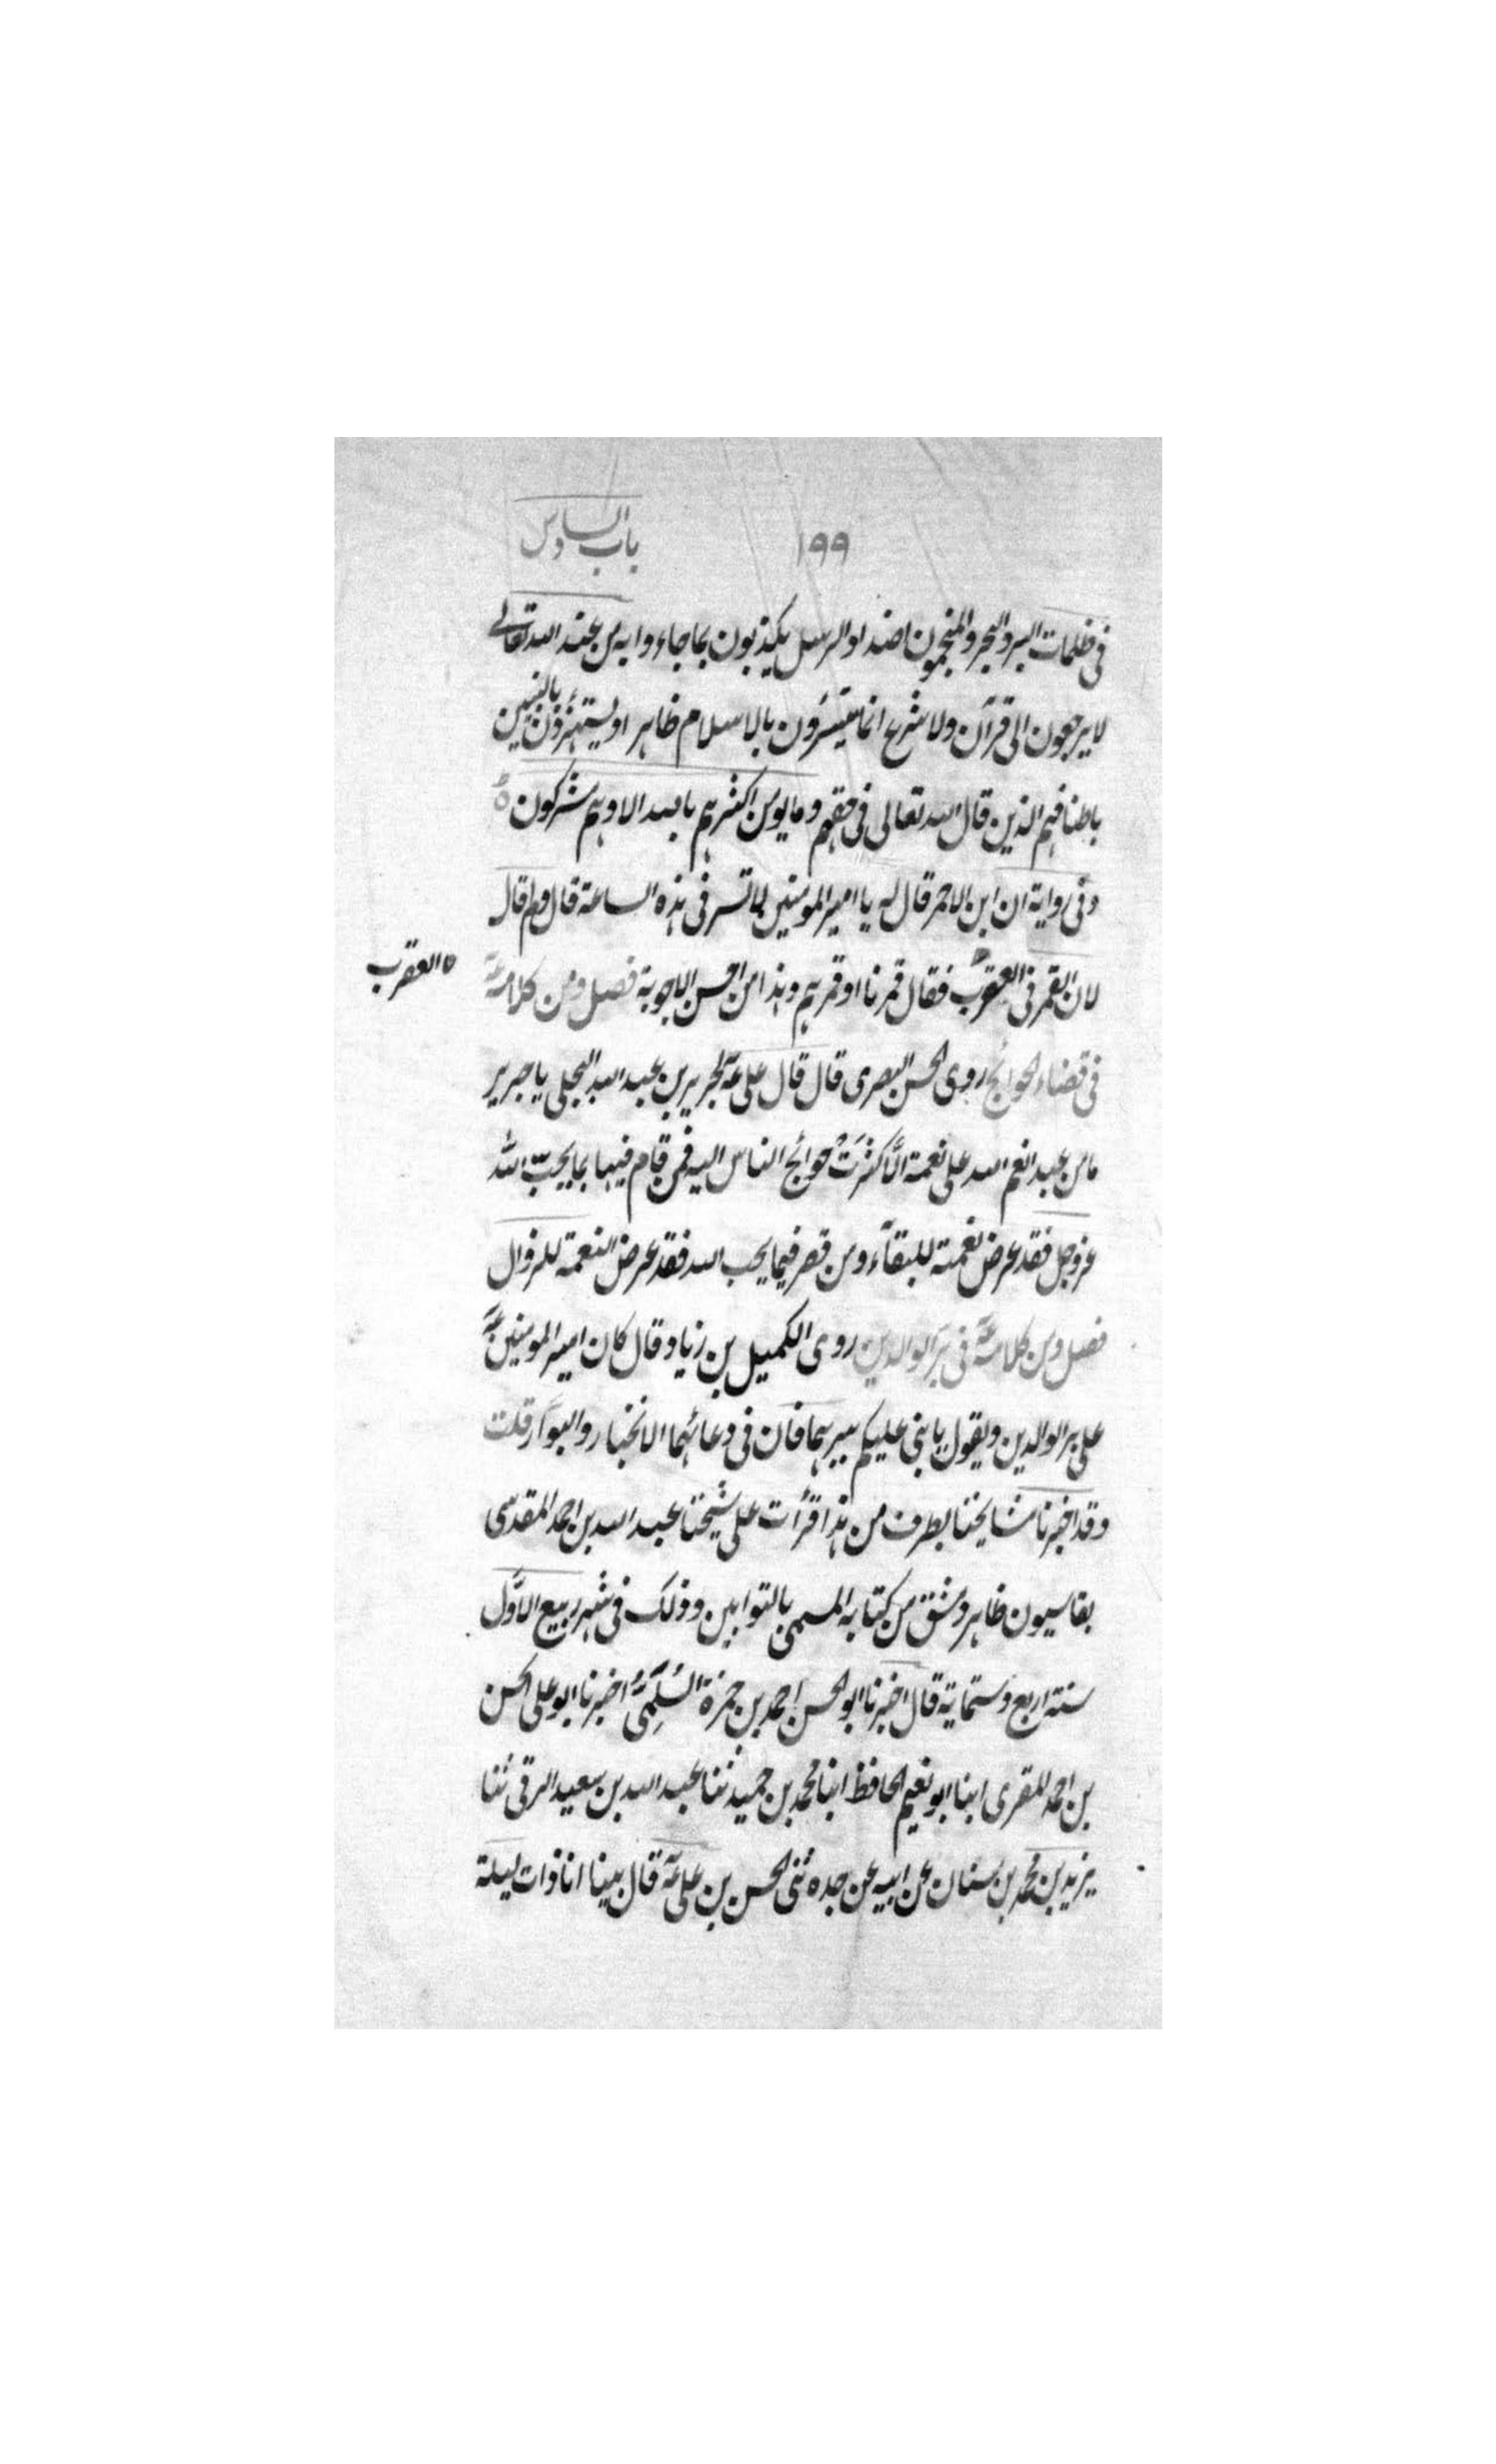 ١٩٩
باب السادس
في ظلمات البر والبحر والمنجمون اضداد الرسل يكذبون بما جاءوا به من عند الله تعالى
لا يرجعون الى قرآن ولا شرع انما يتسترون بالاسلام ظاهرا ويستهزؤن بالنبيين
باطنا فهم الذين قال الله تعالى في حقهم وما يومن اكثرهم بالله الا وهم مشركون ٥
وفي رواية ان ابن الاحمر قال له يا امير المومنين لا تسر في هذه الساعة قال ولم قال
لان القمر في العقرب فقال قمرنا او قمرهم وهذا من احسن الاجوبة فصل ومن كلامه عؑ
العقرب
في قضاء الحوائج روى الحسن البصري قال قال علي عؑ لجرير بن عبد الله البجلي يا جرير
ما من عبد انعم الله على نعمة الّا كثرَتْ حوائج الناس اليه فمن قام فيها بما يحبّ الله
عز وجل فقد عرض نعمته للبقآء ومن قصر فيما يحب الله فقد عرض النعمة للزوال
فصل ومن كلامه عؑ في برّ الوالدين روى الكميل بن زياد قال كان امير المومنين عؑ
على بر الوالدين ويقول يا بني عليكم ببرهما فان في دعائهما الانجبار والبوآر قلت
وقد اخبرنا مشايخنا بطرف من هذا قرأت على شيخنا عبد الله بن احمد المقدسي
بقاسيون ظاهر دمشق من كتابه المسمى بالتوابين وذلك في شهر ربيع الاوّل
سنة اربع وستماية قال اخبرنا ابو الحسن احمد بن حمزة السُلَمِيُّ اخبرنا ابو علي الحسن
بن احمد المقري ابنا ابو نعيم الحافظ ابنا محمد بن حميد ثنا عبد الله بن سعيد الرقي ثنا
يزيد بن محمد بن سنان عن ابيه عن جده ثنى الحسن بن علي عؑ قال بينا انا ذات ليلة